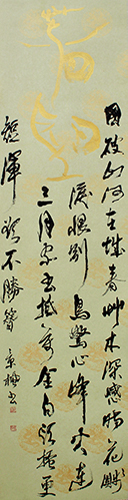 春望
國破山河在城春草木深感時花濺
淚恨別鳥驚心烽火連
三月家書抵萬金白頭搔更
短渾欲不勝簪